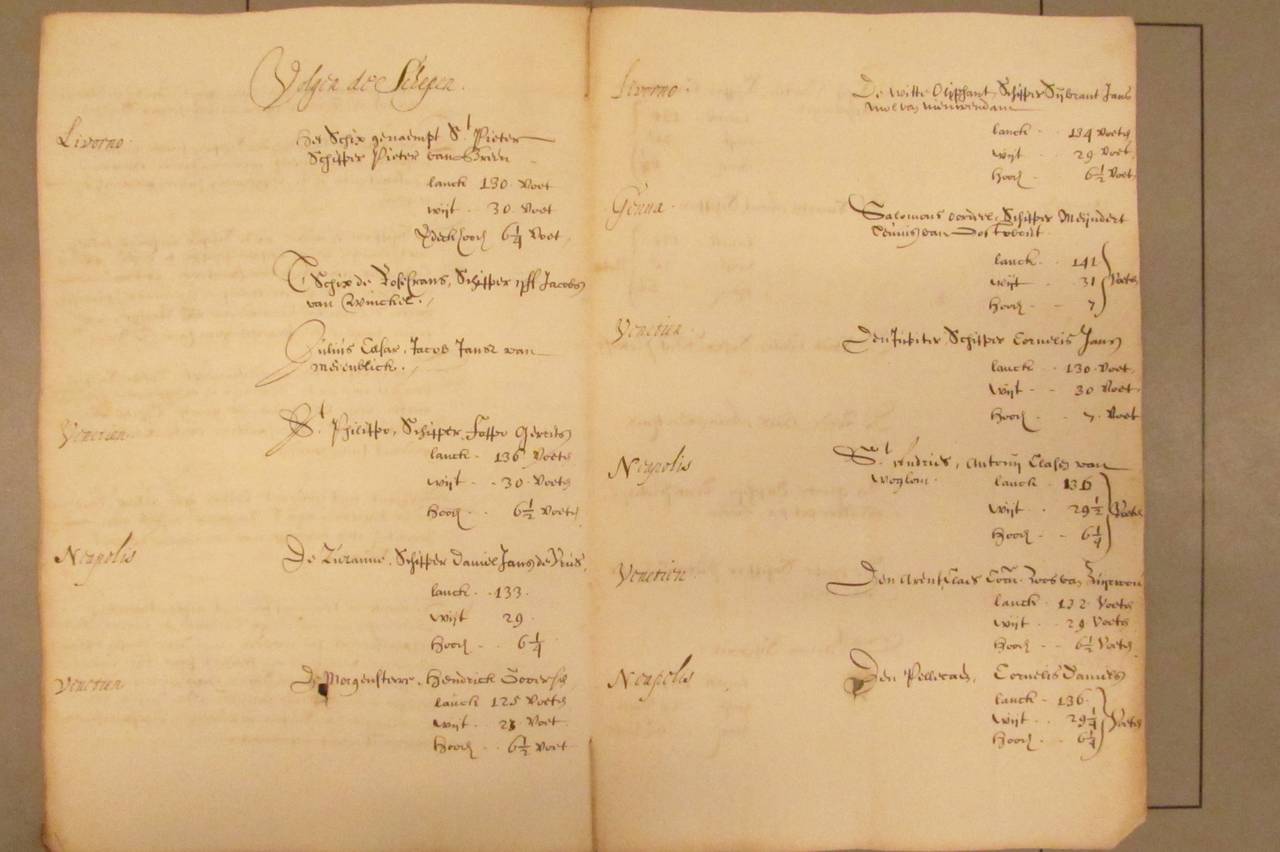 Volgen de Schepen.
Livorno.
Het Schip genaempt St Pieter
Schipper Pieter van
lanck 130 voet
wijt . 30 voet
hooch 6 1/4 voet
T Schip de Rosecrans, Schipper Jacobs
van Winckel.
Julius Cesar, Jacob Jansz van
Medenblick.
Venetien
St Philippo, Schipper Foppo Gerrits
lanck . 136 voeten
wijt . . 30 voeten
hooch . . 6 1/2 voeten
Neapolis
De Zuzanne, Schipper Daniel Jans de
lanck . . 133.
wijt 29.
hooch . . 6 1/4
Venetien
De Morgensterre, Hendrick
lanck 125 voeten
wijt . . voet
hooch . . 6 1/2 voet
Livorno.
De Witte Oliphant, Schipper Sijbrant Jans
Mol van
lanck . . 134 voeten
wijt . . 29 voet
hooch . 6 1/2 voet
Genua.
Salomons oordeel, Schipper Meijndert
van
lanck . . 141
wijt . . 31 voeten
hooch . . 7
Venetien
Den Jupiter Schipper Cornelis Jans
lanck . . 130 voet
wijt . . 30 voet
hooch . . 7 voet
Neapolis
St Andries, Antonij Clasen van
lanck . . 136
wijt . . 29 1/2 voeten
hooch . . 6 1/4
Venetien
Den Arent, Claes van
lanck . 132 voeten
wijt . . 29 voeten
hooch . . 6 1/2 voeten
Neapolis
Den Pellicaen, Cornelis Daniels
lanck . 136
wijt . . 29 1/4 voeten
hooch . . 6 1/4